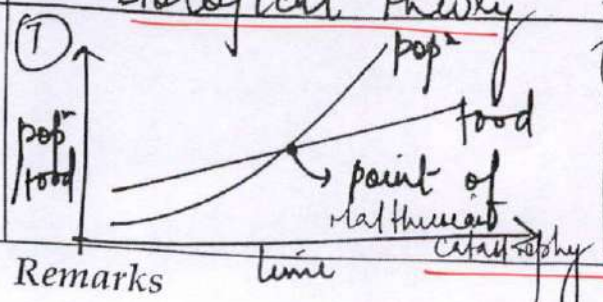 Biological Theory
7
popⁿ
food
popⁿ
/food
point of
Malthusian
catastrophy
time
Remarks